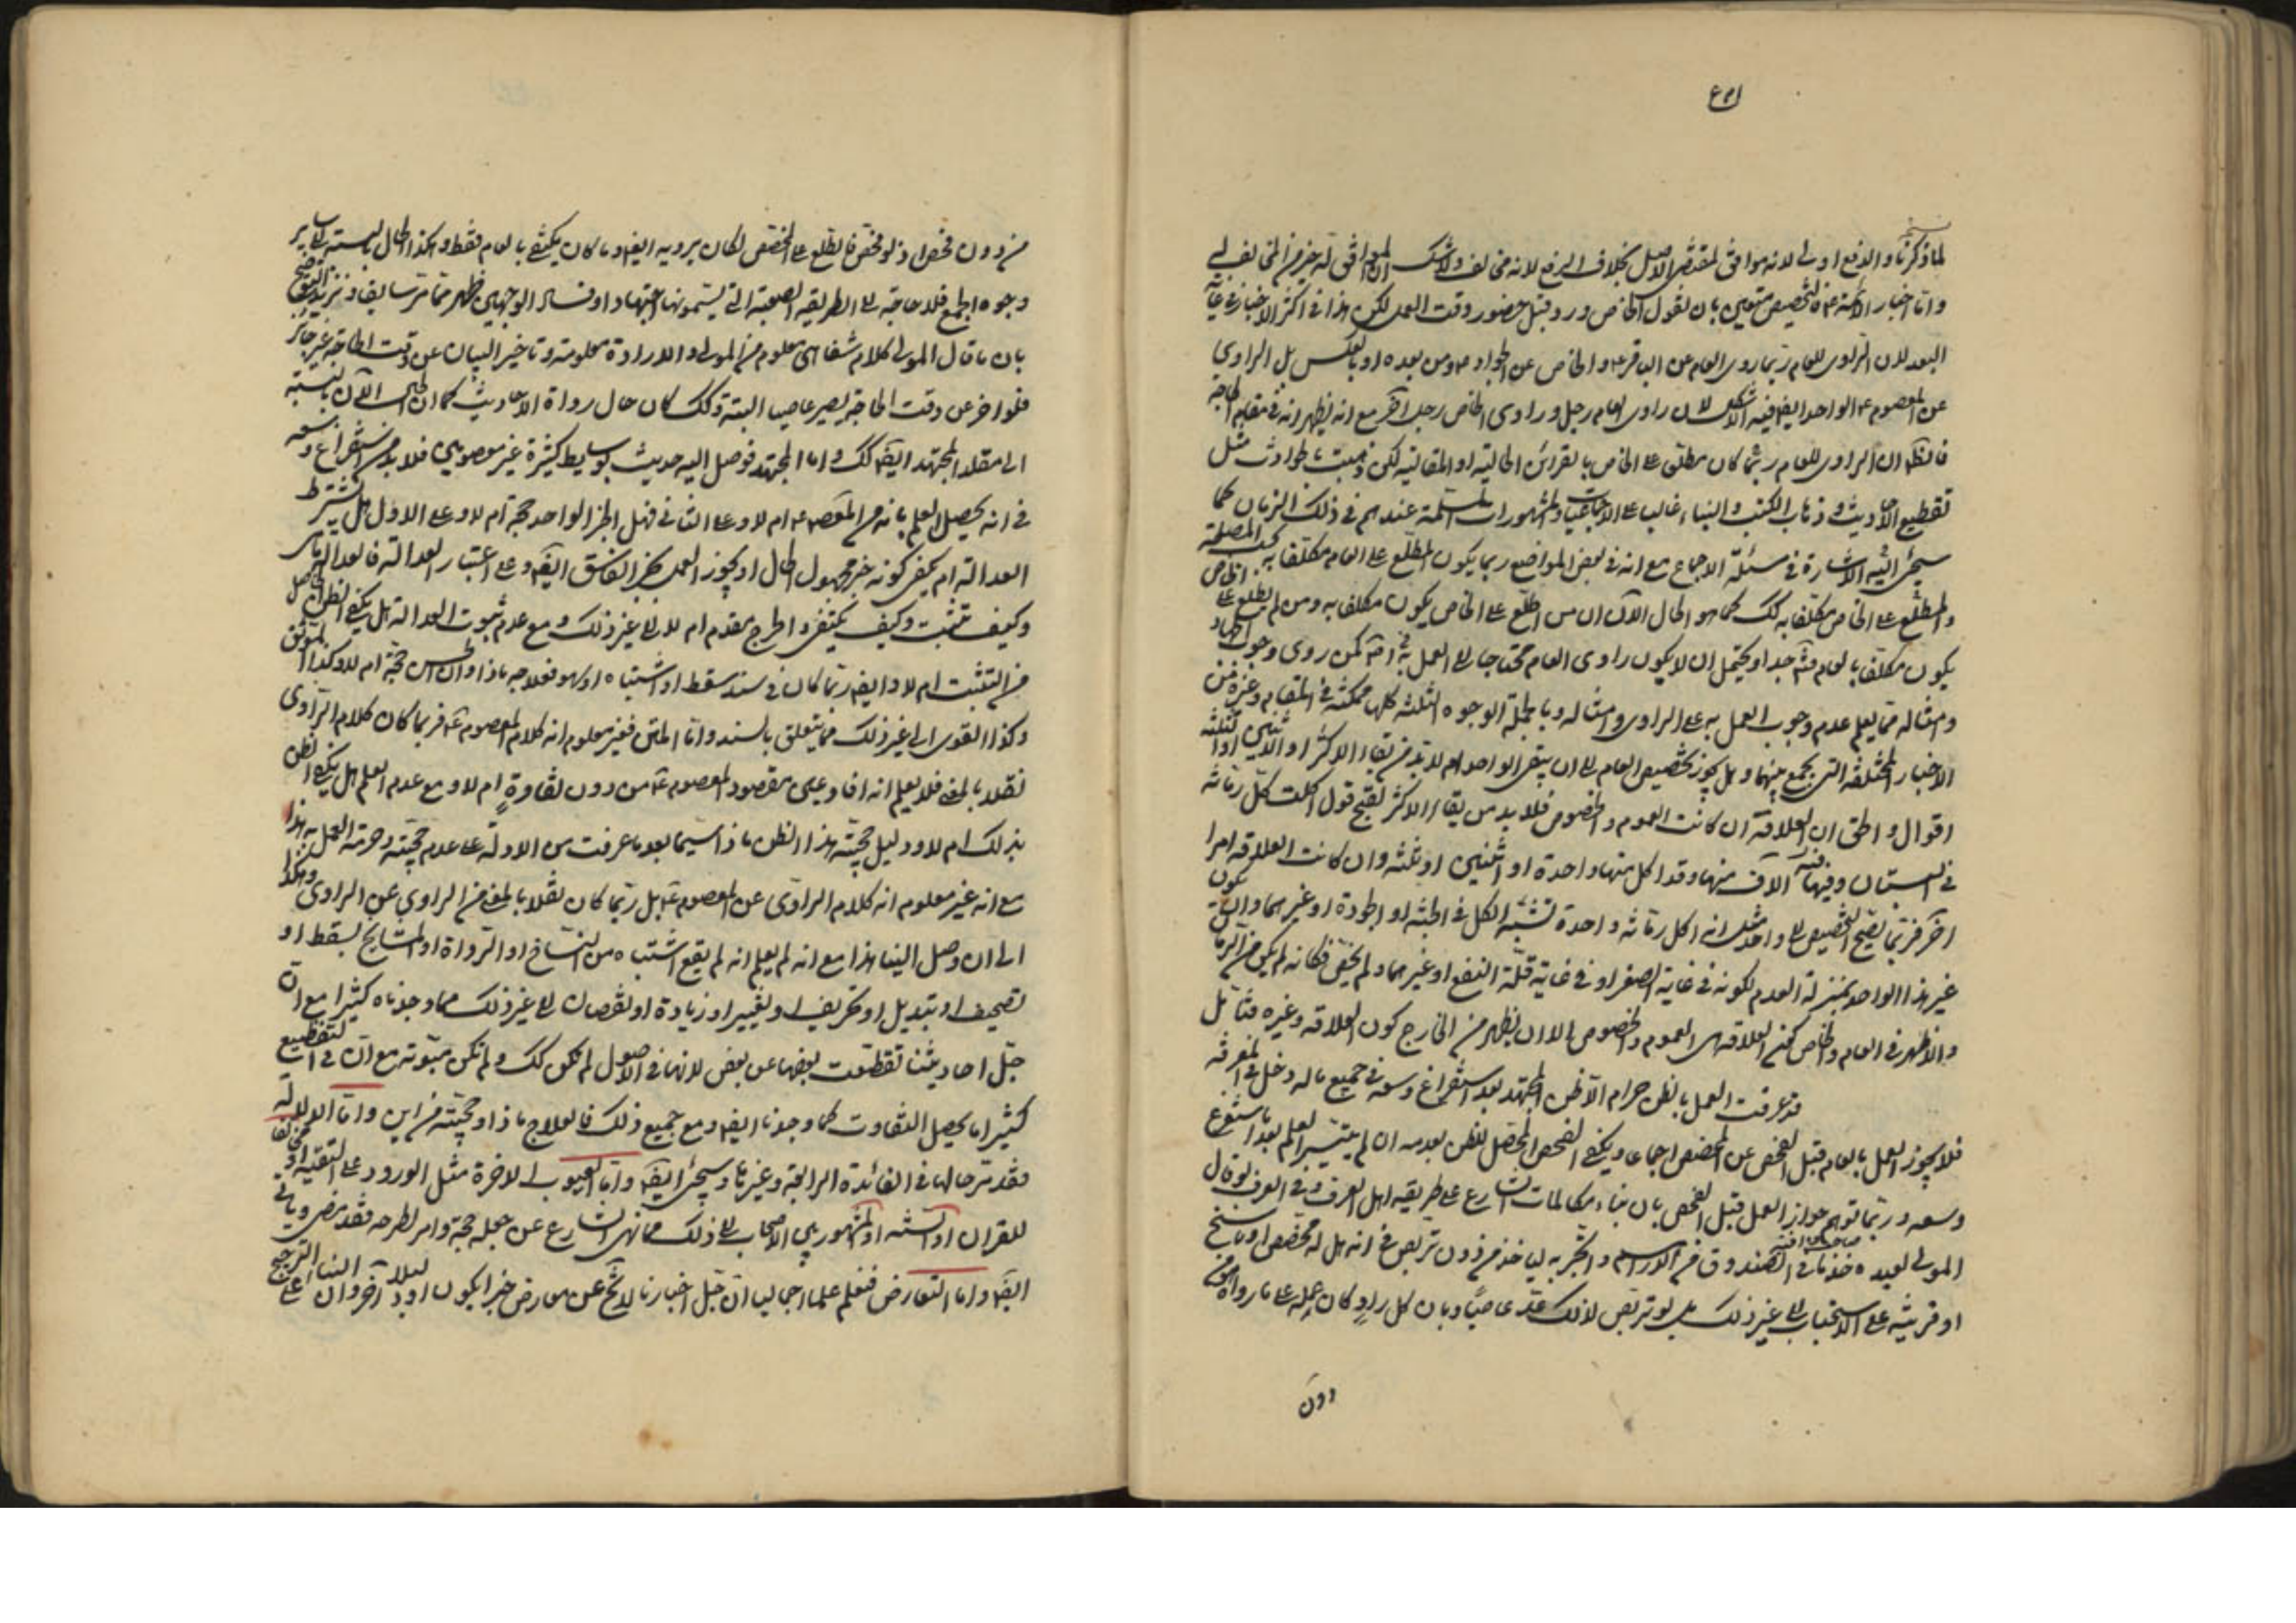 لما ذكرنا والدفع اولى لانه موافق لمقتضى الاصل بخلاف الرفع لانه مخالف ولا شك ان الموافق له خير من المخالف له
واما اخبار الائمة ع فالتخصيص متعين بان نقول الخاص ورد قبل حضور وقت العمل لكن هذا في اكثر الاخبار في غاية
البعد لان الراوى للعام ربما روى العام عن الباقر ع والخاص عن الجواد ع ومن بعده او بالعكس بل الراوي
عن المعصوم ع الواحد ايضا فيه الاشكال لان راوى العام رجل وراوى الخاص رجل آخر مع انه يظهر انه في مقام الحاجة
فالظ ان الراوى للعام ربما كان مطلع على الخاص بالقرائن الحالية او المقالية لكن ذهبت بالحوادث مثل
تقطيع الاحاديث وذهاب الكتب والبناء غالب على الاجماعيات والمشهورات المسلمة عندهم في ذلك الزمان كما
سيجئ اليه الاشارة في مسئلة الاجماع مع انه في بعض المواضع ربما يكون المطلع على العام مكلفا به بحسب المصلحة
والمطلع على الخاص مكلفا به كك كما هو الحال الآن ان من اطلع على الخاص يكون مكلفا به ومن لم يطلع على الخاص
يكون مكلفا بالعام فتامل جدا ويحتمل ان لا يكون راوى العام محتاجا الى العمل به كمن روى وجوب الجهاد
وامثاله مما يعلم عدم وجوب العمل به على الراوى وامثاله وبالجملة الوجوه الثلثة كلها ممكنة في المقام وغيره من
الاخبار المختلفة التي يجمع بينهما وهل يجوز تخصيص العام الى ان يبقى الواحد ام لا بد من بقاء الاكثر او الاثنين او الثلثة
اقوال والحق ان العلاقة ان كانت العموم والخصوص فلا بد من بقاء الاكثر لقبح قول اكلت كل رمانة
في البستان وفيها آلاف منها وقد اكل منها واحدة او اثنين او ثلثة وان كانت العلاقة امرا
آخر فربما يصح التخصيص الى واحد مثل انه اكل رمانة واحدة تشبه الكل في الجثة او الجودة او غيرهما او ان يكون
غير هذا الواحد بمنزلة العدم لكونه في غاية الصغر او في غاية قلة النفع او غيرهما ولم يخفى فكانه لم يكن من الرمان
والاظهر في العام والخاص كون العلاقة هي العموم والخصوص الا ان يظهر من الخارج كون العلاقة غيره فتامل
قد عرفت العمل بالظن حرام الا ظن المجتهد بعد استفراغ وسعه في جميع ما له دخل في المعرفة
فلا يجوز العمل بالعام قبل الفحص عن المخصص اجماعا ويكفي الفحص المحصل للظن بعدمه ان لم يتيسر العلم بعد استفراغ
وسعه وربما توهم جواز العمل قبل الفحص بان بناء مكالمات الشارع على طريقة اهل العرف وفي العرف لو قال
المولى لعبده خذ ما في الصندوق من الدراهم واتجر به لياخذ من دون تربص في انه هل له مخصص او ناسخ
او قرينة على الاستحباب الى غير ذلك بل لو تربص لذلك عد عاصيا وبان كل راو كان عمله على ما رواه من
دون
من دون فحص اذ لو فحص فاطلع على المخصص لكان يرويه ايضا وما كان يكتفي بالعام فقط وهكذا الحال بالنسبة الى ساير
وجوه الجمع فلا حاجة الى الطريقة الصعبة التي يسمونها اجتهادا وفساد الوجهين ظهر مما مر سابقا ونزيد التوضيح
بان ما قال المولى كلام شفاهي معلوم من المولى والارادة معلومة وتاخير البيان عن وقت الحاجة غير جائز
فلو اخر عن وقت الحاجة يصير عاصيا البتة وكك كان حال رواة الاحاديث كما ان الحال الآن بالنسبة
الى مقلد المجتهد ايضا كك واما المجتهد فوصل اليه حديث بوسايط كثيرة غير معصومين فلا بد من استفراغ وسعه
في انه يحصل العلم بانه من المعصوم ع ام لا وعلى الثاني فهل الخبر الواحد حجة ام لا وعلى الاول هل يشترط
العدالة ام يكفي كونه خبر مجهول الحال او يجوز العمل بخبر الفاسق ايضا وعلى اعتبار العدالة فالعدالة ماذا
وكيف تثبت وكيف يكتفى والجرح مقدم ام لا الى غير ذلك ومع عدم ثبوت العدالة هل يكفي الظن الحاصل
من التثبت ام لا وايضا ربما كان في سنده سقط او اشتباه او سهو فعلاجه ماذا وان الحسن حجة ام لا وكذا الموثق
وكذا القوى الى غير ذلك مما يتعلق بالسند واما المتن فغير معلوم انه كلام المعصوم ع فربما كان كلام الراوى
نقلا بالمعنى فلا يعلم انه افاد عين مقصود المعصوم ع من دون تفاوت ام لا ومع عدم العلم هل يكفي الظن
بذلك ام لا ودليل حجية هذا الظن ماذا سيما بعد ما عرفت من الادلة على عدم حجيته وحرمة العمل به هذا
مع انه غير معلوم انه كلام الراوى عن المعصوم ع بل ربما كان نقلا بالمعنى من الراوي عن الراوى وهكذا
الى ان وصل الينا هذا مع انه لم يعلم انه لم يقع اشتباه من النساخ او الرواة او المشايخ بسقط او
تصحيف او تبديل او تحريف او تغيير او زيادة او نقصان الى غير ذلك مما وجدناه كثيرا مع ان
جل احاديثنا تقطعت بعضها عن بعض لانها في الاصول لم تكن كك ولم تكن مبوبة مع ان في التقطيع
كثيرا ما يحصل التفاوت كما وجدنا ايضا ومع جميع ذلك فالعلاج ماذا وحجيته من اين واما الدلالة
فقد مر حالها في الفائدة الرابعة وغيرها وسيجئ ايضا واما العيوب الاخرة مثل الورود على التقية او مخالفا
للقران او السنة او المشهور بين الاصحاب الى ذلك مما نهى الشارع عن جعله حجة وامر بطرحه فقد مضى وياتي
ايضا واما التعارض فنعلم علما اجماليا ان جل اخبارنا لا يخ عن معارض خبرا يكون او دليلا آخر وان البناء على الترجيح